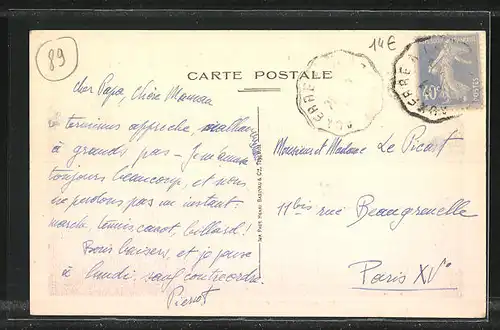 89
14€
CARTE POSTALE
AUXERRE
AUXERRE
40c
POSTES
Cher Papa, Chère Maman
terminus approche,
à grands pas - Je m'amuse
toujours beaucoup, et nous
ne perdons pas un instant.
marche, tennis, canot, billard!
Bons baisers, et je pense
à lundi, sauf contrordre.
Pierrot
Monsieur et Madame Le Picart
11bis rue Beaugrenelle
Paris XVe